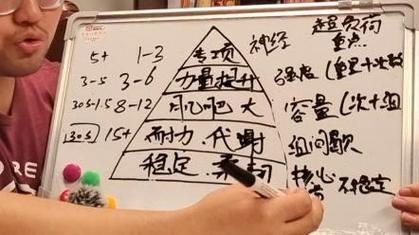 超负荷
重点
5+ 1-3 专项 神经
3-5 3-6 力量提升 强度(重量+次数
30s-1.5 8-12 肌肥大 容量(次+组
30s 15+ 耐力.代谢 组间歇
稳定.柔韧 核心
不稳定